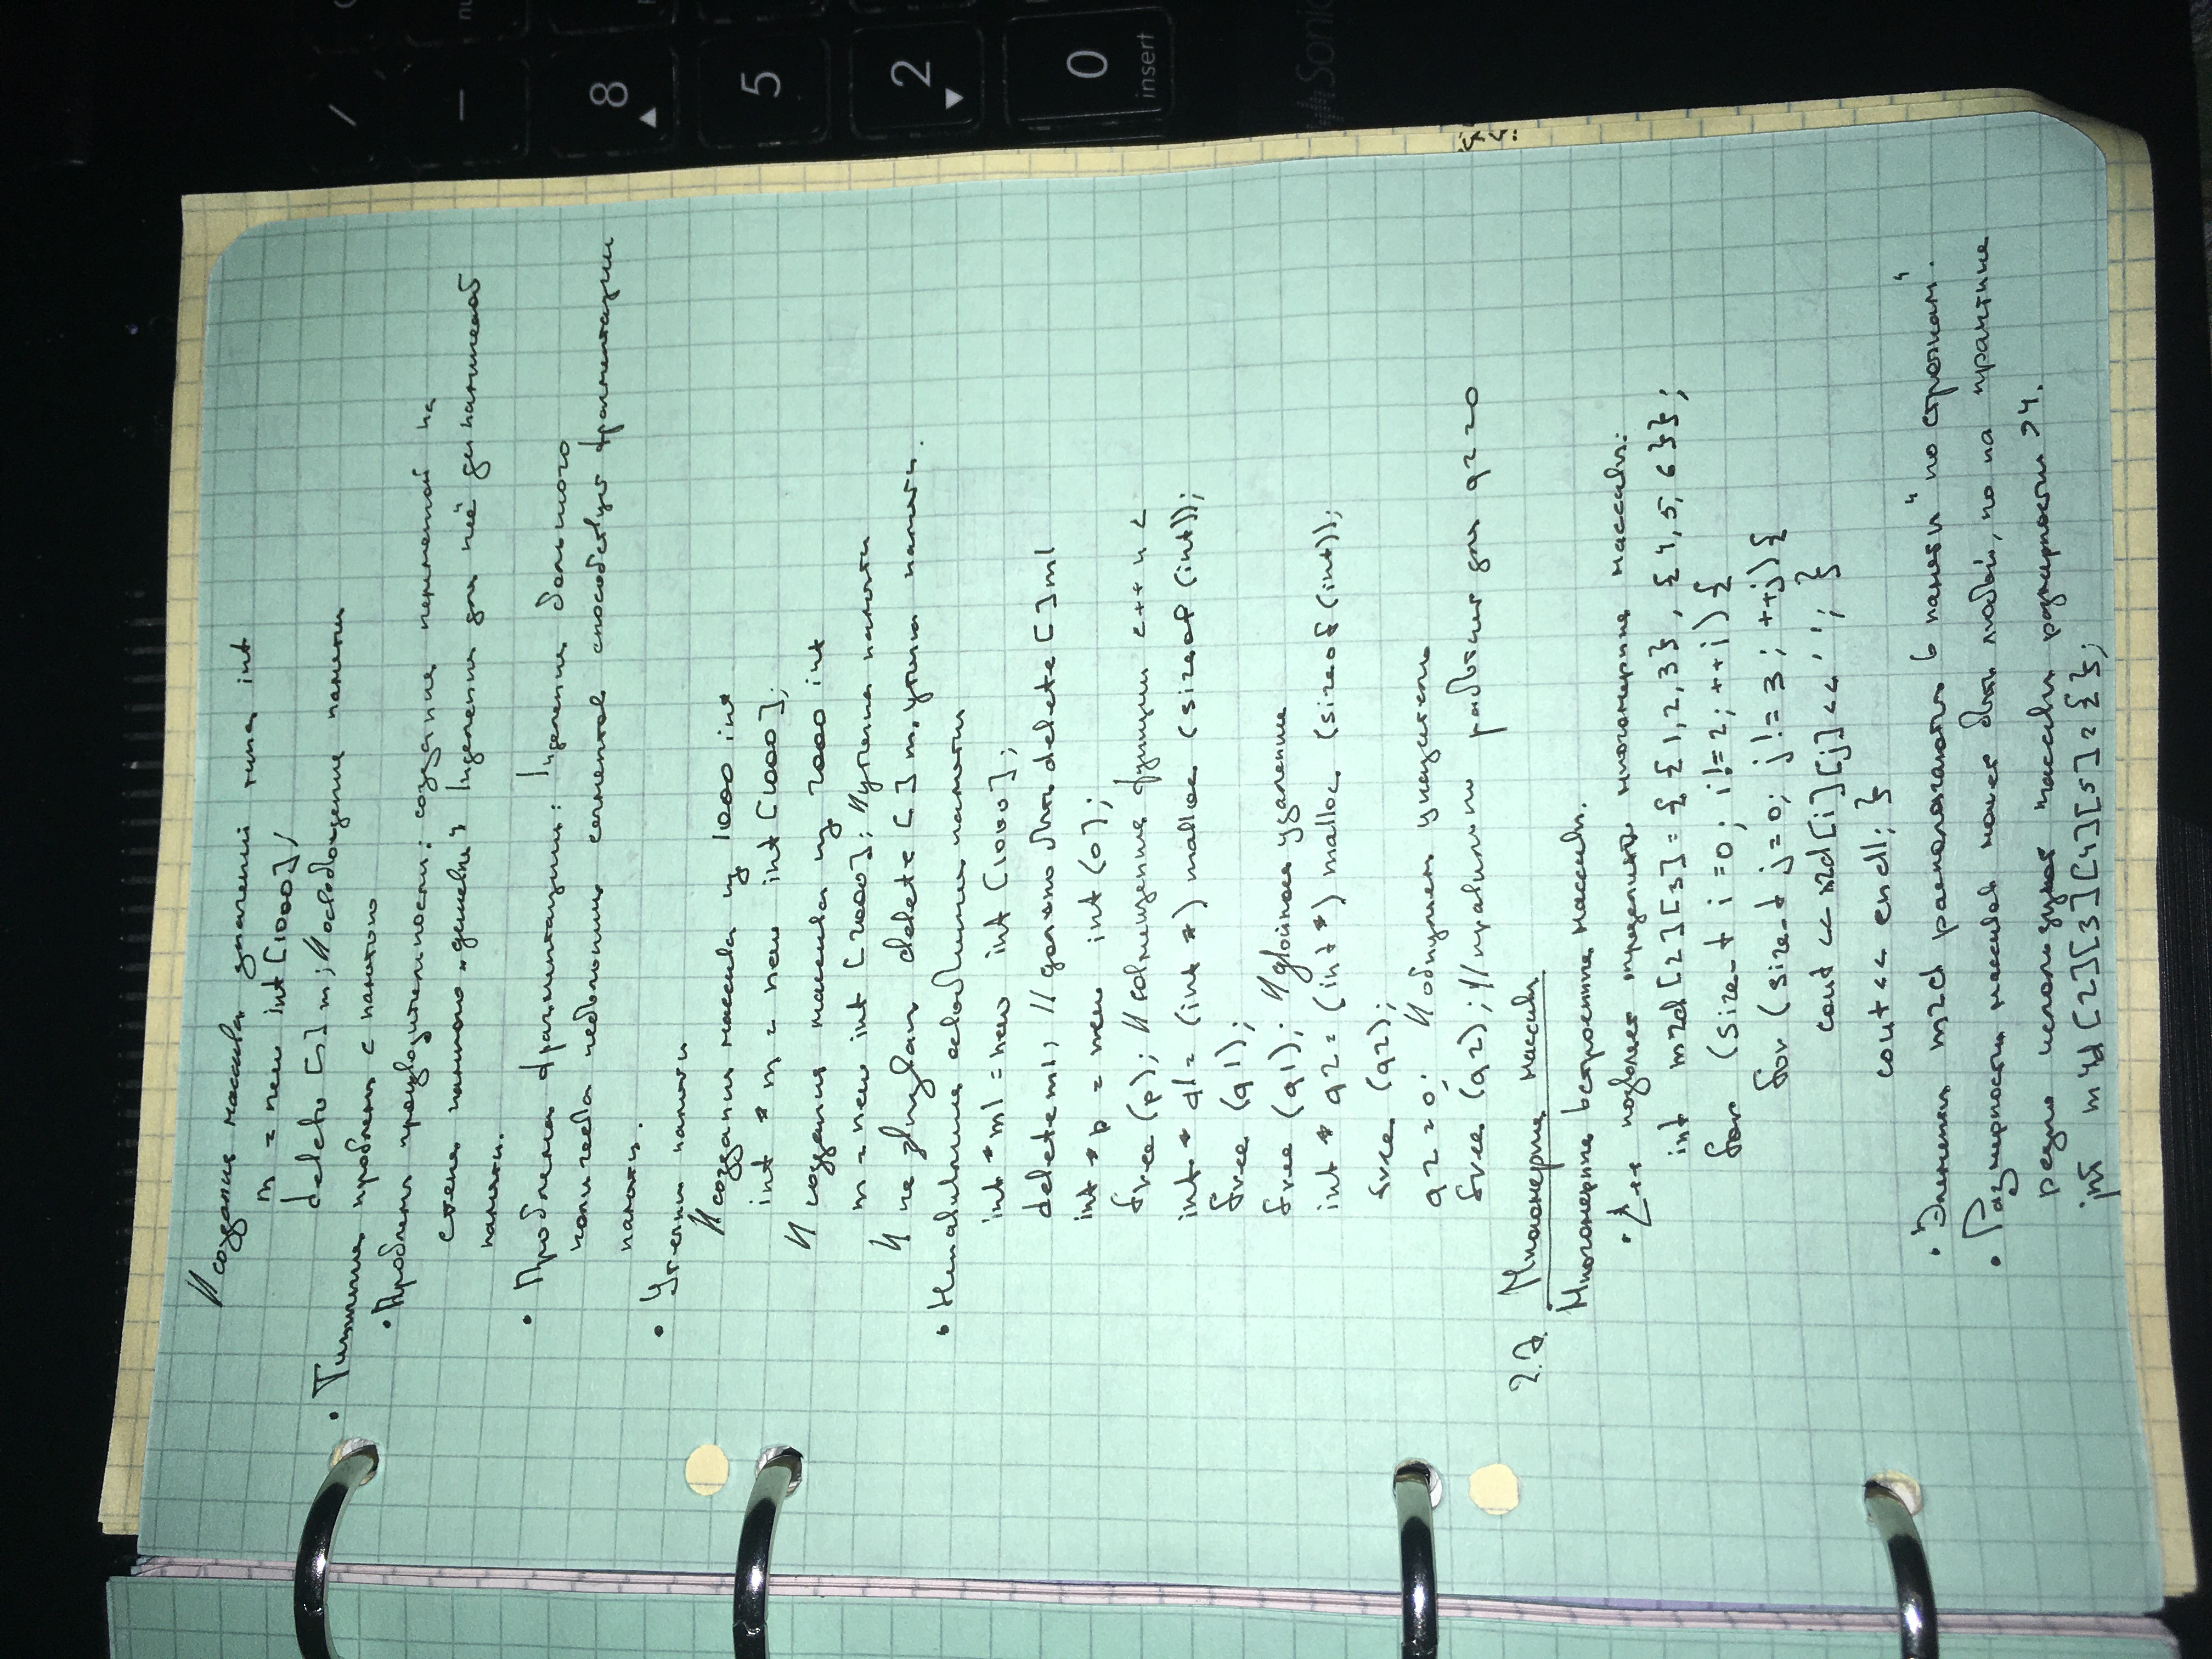 // создание массива значений типа int
m = new int [1000];
delete [] m; // освобождение памяти
• Типичные проблемы с памятью
• Проблемы производительности: создание переменной на
стеке намного „дешевле“ выделения для неё динамической
памяти.
• Проблема фрагментации: выделение большого
количества небольших сегментов способствует фрагментации
памяти.
• Утечки памяти
// создание массива из 1000 int
int * m = new int [1000];
// создание массива из 2000 int
m = new int [2000]; // утечка памяти
// не вызван delete [] m, утечка памяти.
• Неправильное освобождение памяти
int * m1 = new int [1000];
delete m1; // должно быть delete [] m1
int * p = new int (0);
free (p); // совмещение функции c++ и c
int * q1 = (int *) malloc (sizeof (int));
free (q1);
free (q1); // двойное удаление
int * q2 = (int *) malloc (sizeof (int));
free (q2);
q2 = 0; // обнуляем указатель
free (q2); // правильно работает для q2 = 0
2.7 Многомерные массивы
Многомерные встроенные массивы.
• C++ позволяет определить многомерные массивы:
int m2d [2][3] = { {1, 2, 3} , {4, 5, 6}};
for (size_t i = 0; i != 2; ++i) {
for (size_t j = 0; j != 3; ++j) {
cout << m2d[i][j] << ' '; }
cout << endl; }
• Элементы m2d располагаются в памяти "по строчкам".
• Размерность массивов может быть любой, но на практике
редко используют массивы размерности >4.
int m4d [2][3][4][5] = {};
8
5
2
0
insert